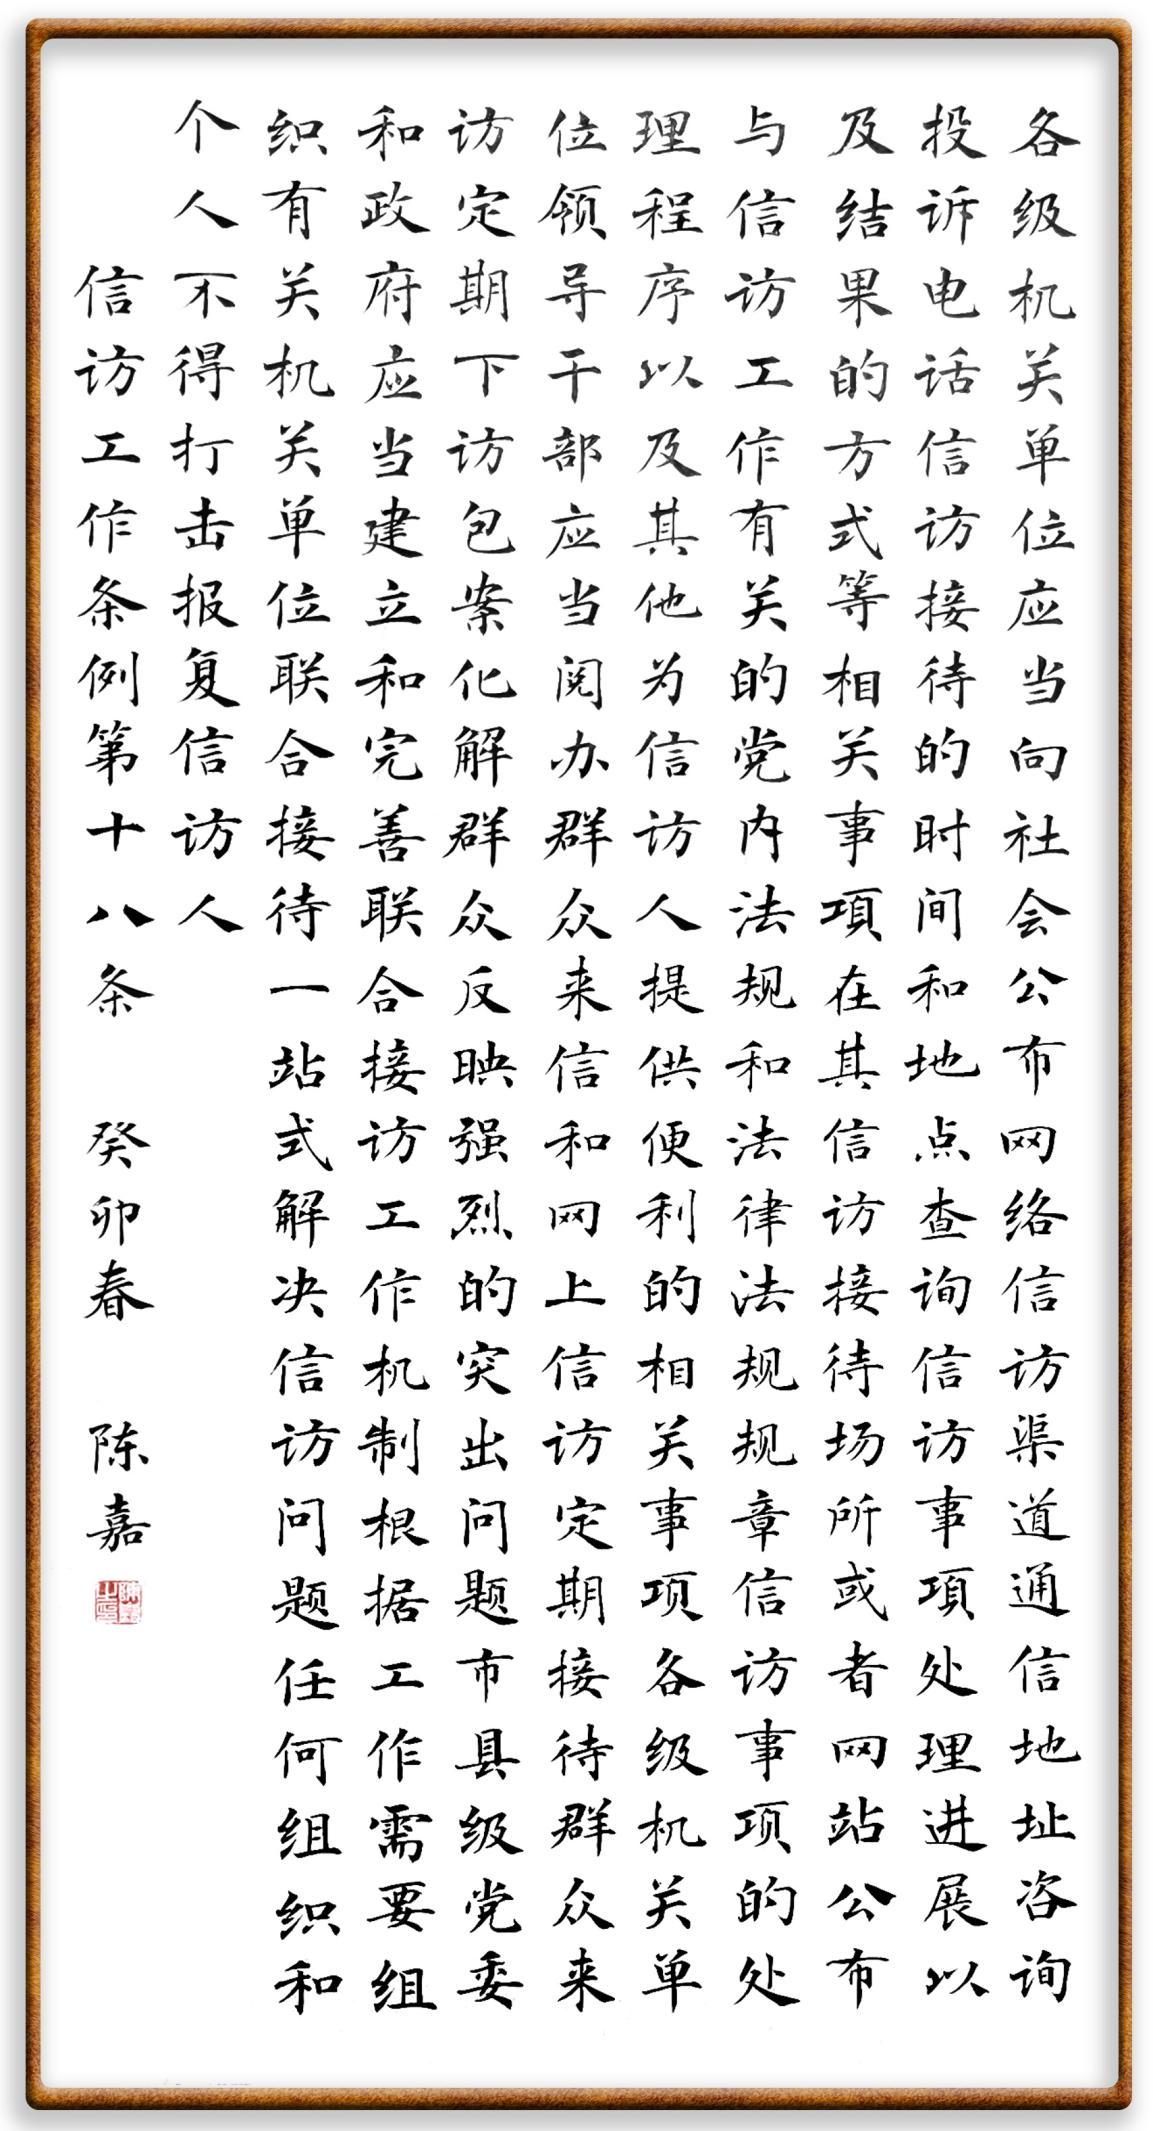 各级机关单位应当向社会公布网络信访渠道通信地址咨询
投诉电话信访接待的时间和地点查询信访事項处理进展以
及结果的方式等相关事項在其信访接待场所或者网站公布
与信访工作有关的党内法规和法律法规规章信访事项的处
理程序以及其他为信访人提供便利的相关事项各级机关单
位领导干部应当阅办群众来信和网上信访定期接待群众来
访定期下访包案化解群众反映强烈的突出问题市县级党委
和政府应当建立和完善联合接访工作机制根据工作需要组
织有关机关单位联合接待一站式解决信访问题任何组织和
个人不得打击报复信访人
信访工作条例第十八条 癸卯春 陈嘉